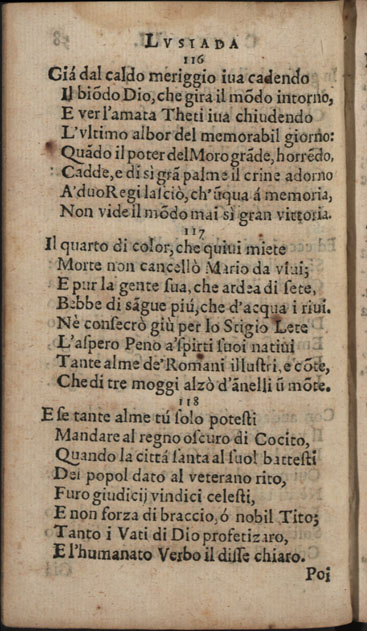 LVSIADA
116
Giá dal caldo meriggio iua cadendo
Il biõdo Dio, che gira il mõdo intorno,
E ver l'amata Theti iua chiudendo
L'vltimo albor del memorabil giorno:
Quãdo il poter del Moro grãde, horrẽdo,
Cadde, e di sì grã palme il crine adorno
A' duo Regi lasciò, ch'ũqua á memoria,
Non vide il mõdo mai sì gran vittoria.
117
Il quarto di color, che quiui miete
Morte non cancellò Mario da viui;
E pur la gente sua, che ardea di sete,
Bebbe di sãgue piú, che d'acqua i riui.
Nè consecrò giù per lo Stigio Lete
L'aspero Peno a' spirti suoi natiui
Tante alme de' Romani illustri, e cõte,
Che di tre moggi alzò d'ãnelli ũ mõte.
118
E se tante alme tú solo potesti
Mandare al regno oscuro di Cocito,
Quando la cittá santa al suol battesti
Del popol dato al veterano rito,
Furo giudicij vindici celesti,
E non forza di braccio, ó nobil Tito;
Tanto i Vati di Dio profetizaro,
E l'humanato Verbo il disse chiaro.
Poi